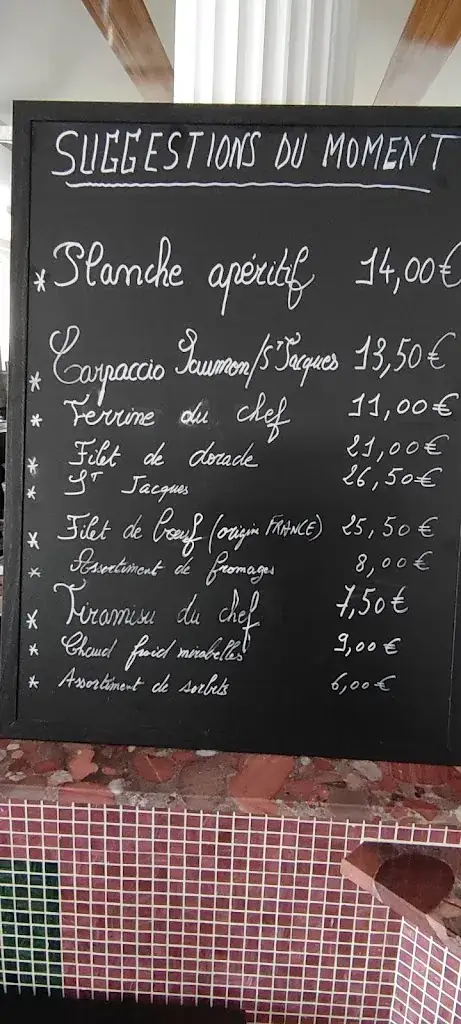 SUGGESTIONS DU MOMENT
* Planche apéritif 14,00€
* Carpaccio Saumon/ST Jacques 13,50€
* Terrine du chef 11,00€
* Filet de dorade 21,00€
* ST Jacques 26,50€
* Filet de boeuf (origin FRANCE) 25,50€
* Assortiment de fromages 8,00€
* Tiramisu du chef 7,50€
* Chaud froid mirabelles 9,00€
* Assortiment de sorbets 6,00€